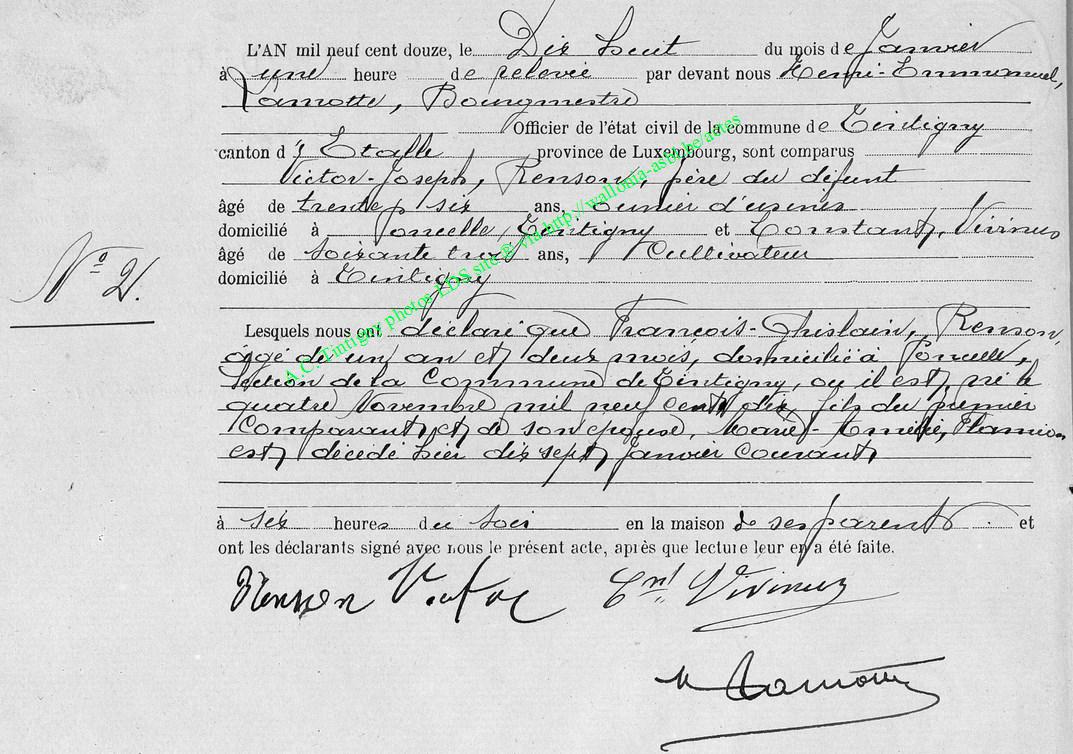 L'AN mil neuf cent douze, le Dix huit du mois de Janvier
à une heure de relevée par devant nous Henri-Emmanuel,
Lamotte, Bourgmestre
Officier de l'état civil de la commune de Tintigny
canton d' Etalle province de Luxembourg, sont comparus
Victor-Joseph, Renson, père du défunt
âgé de trente six ans, ouvrier d'usines
domicilié à Poncelle, Tintigny et Constant, Vivinus
âgé de soixante trois ans, Cultivateur
domicilié à Tintigny
N° 2.
Lesquels nous ont déclaré que François-Ghislain, Renson,
âgé de un an et deux mois, domicilié à Poncelle,
section de la Commune de Tintigny, où il est né le
quatre Novembre mil neuf cent dix, fils du premier
Comparant et de son épouse, Marie-Amélie,
est décédé hier dix sept Janvier courant
à six heures du soir en la maison de ses parents et
ont les déclarants signé avec nous le présent acte, après que lecture leur en a été faite.
Renson Victor Cnt Vivinus
H Lamotte
A.C. Tintigny photos LDS site © via http://wallonia-asbl.be/actes